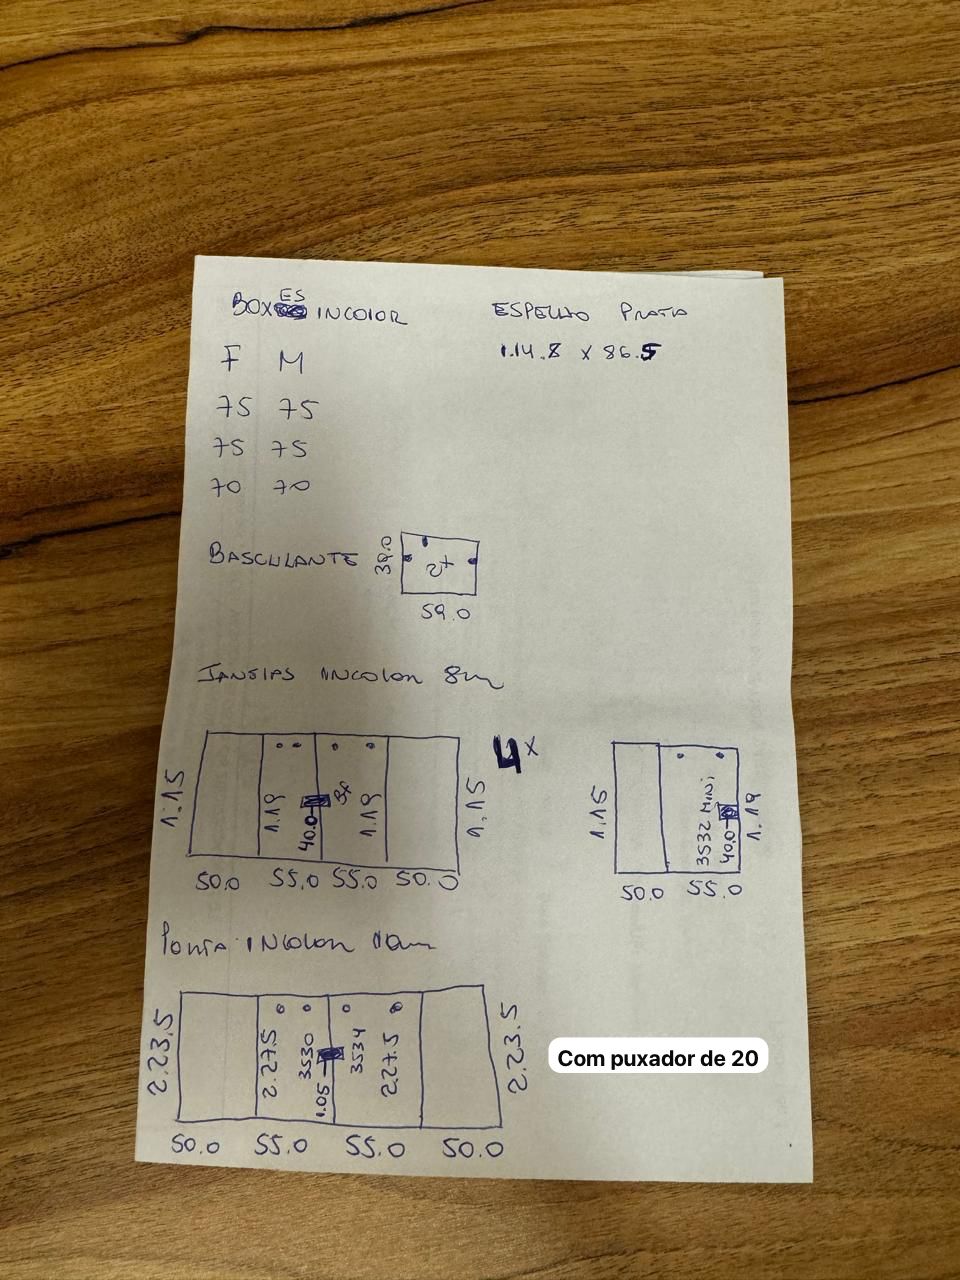 BOXES INCOLOR
F M
75 75
75 75
70 70
ESPELHO PRATA
1.14.8 x 86.5
BASCULANTE
39.0
2x
59.0
INCOLOR 8m
1.15
1.19
40.0
1.19
1.15
50.0 55.0 55.0 50.0
4x
1.15
3532 MINI
40.0
1.19
50.0 55.0
PORTA INCOLOR 10m
2.23.5
2.27.5
3530
1.05
3534
2.27.5
2.23.5
50.0 55.0 55.0 50.0
Com puxador de 20